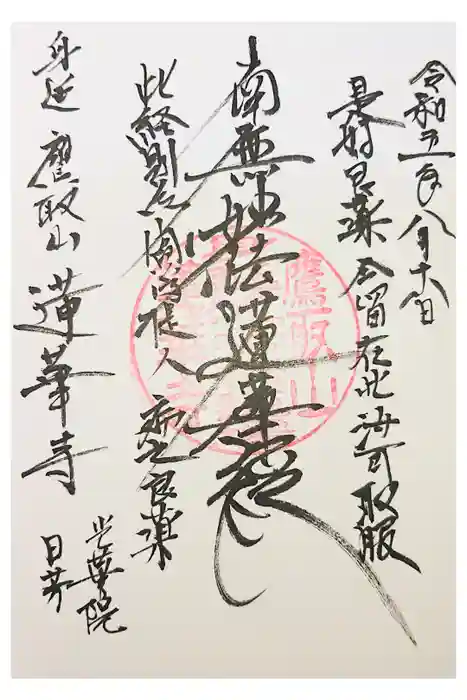 令和五年八月十六日
是好良薬 今留在此 汝可取服
南無妙法蓮華経
此経則為閻浮提人 病之良薬
身延 鷹取山 蓮華寺
鷹取山